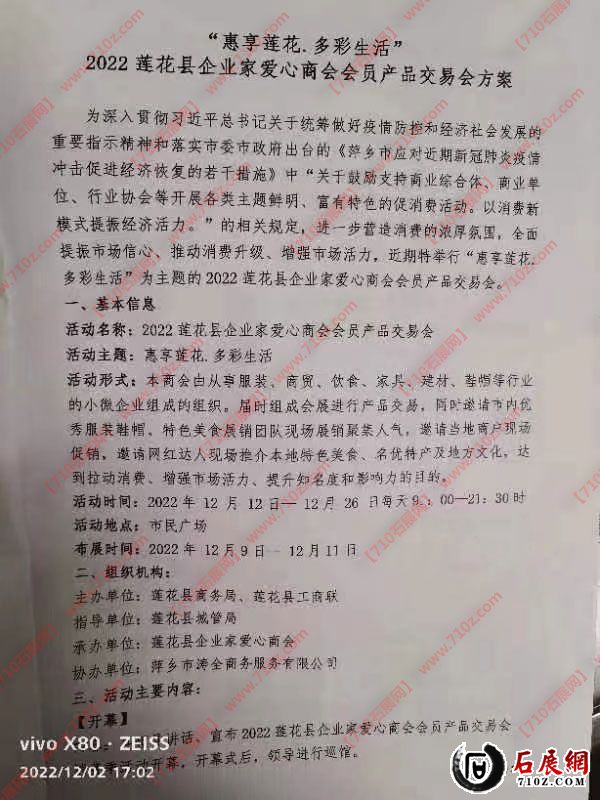 “惠享莲花.多彩生活”
2022 莲花县企业家爱心商会会员产品交易会方案
为深入贯彻习近平总书记关于统筹做好疫情防控和经济社会发展的
重要指示精神和落实市委市政府出台的《萍乡市应对近期新冠肺炎疫情
冲击促进经济恢复的若干措施》中“关于鼓励支持商业综合体、商业单
位、行业协会等开展各类主题鲜明、富有特色的促消费活动。以消费新
模式提振经济活力。”的相关规定，进一步营造消费的浓厚氛围，全面
提振市场信心、推动消费升级、增强市场活力，近期特举行“惠享莲花.
多彩生活”为主题的 2022 莲花县企业家爱心商会会员产品交易会。
一、基本信息
活动名称：2022 莲花县企业家爱心商会会员产品交易会
活动主题：惠享莲花.多彩生活
活动形式：本商会由从事服装、商贸、饮食、家具、建材、鞋帽等行业
的小微企业组成的组织。届时组成会展进行产品交易，同时邀请市内优
秀服装鞋帽、特色美食展销团队现场展销聚集人气，邀请当地商户现场
促销，邀请网红达人现场推介本地特色美食、名优特产及地方文化，达
到拉动消费、增强市场活力、提升知名度和影响力的目的。
活动时间：2022 年 12 月 12日— 12月 26 日每天 9：00—21：30 时
活动地点：市民广场
布展时间：2022 年 12 月 9 日—12月 11 日
二、组织机构：
主办单位：莲花县商务局、莲花县工商联
指导单位：莲花县城管局
承办单位：莲花县企业家爱心商会
协办单位：萍乡市涛全商务服务有限公司
三、活动主要内容：
【开幕】
讲话，宣布 2022 莲花县企业家爱心商会会员产品交易会
活动开幕，开幕式后，领导进行巡馆。
vivo X80 · ZEISS
2022/12/02 17:02
石展網
710z.com
【710石展网】 www.710z.com